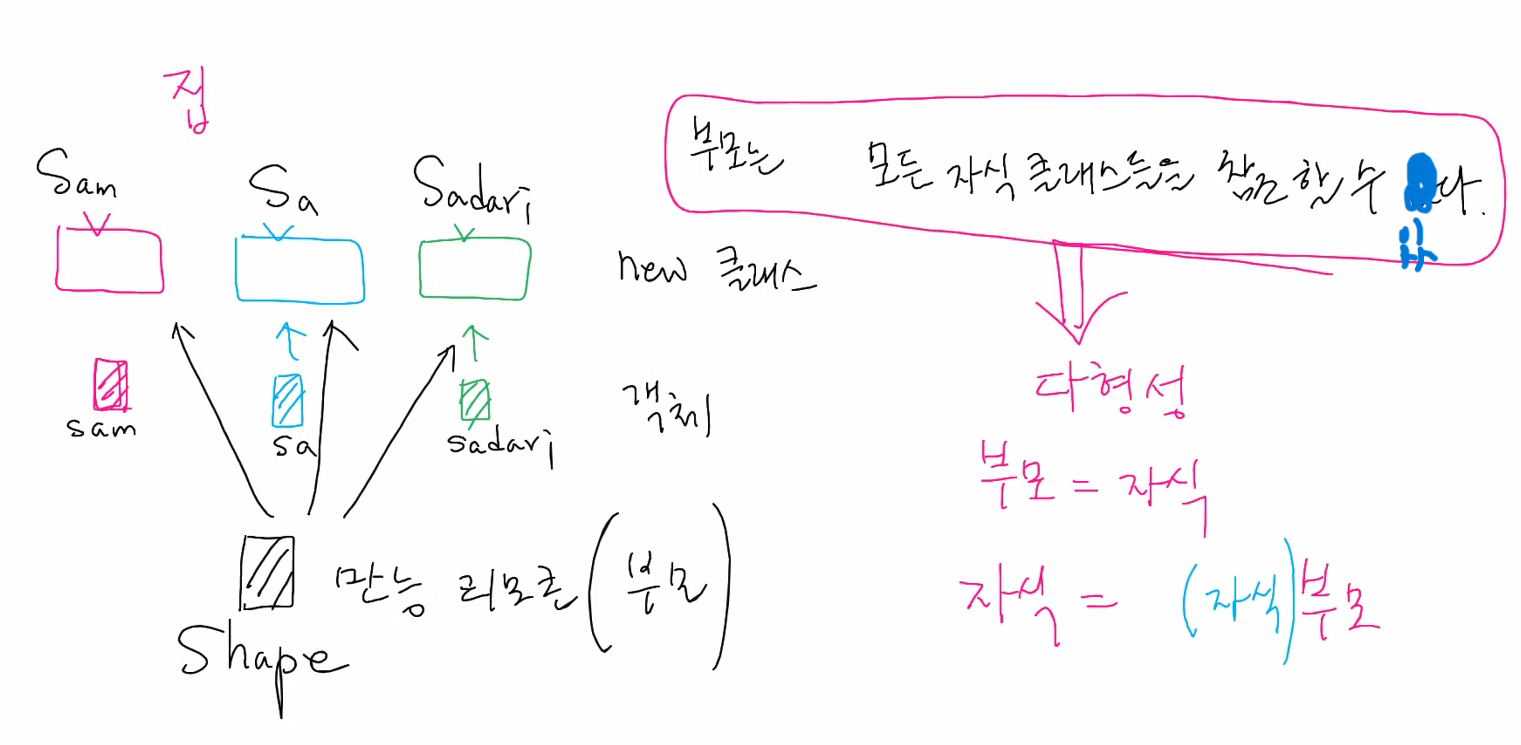 집
Sam Sa Sadari
new 클래스
sam sa sadari
객체
만능 리모콘 (부모)
Shape
부모는 모든 자식 클래스들을 참조할 수 있다.
다형성
부모 = 자식
자식 = (자식)부모